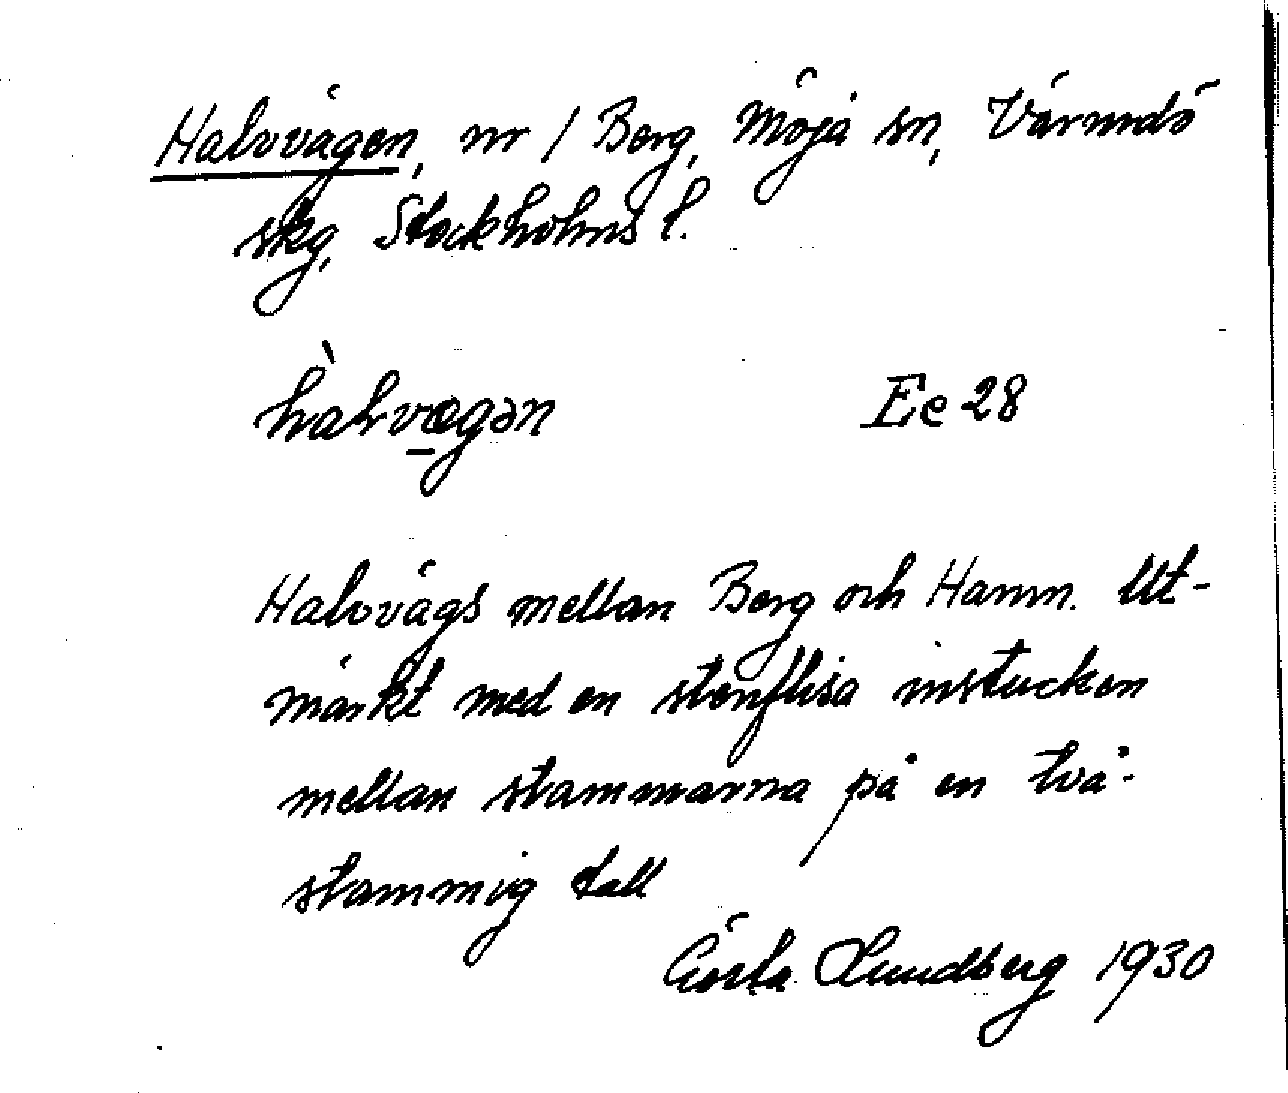 Halvvägen, nr 1 Berg, Möja sn, Värmdö
skg, Stockholms l.
hàlvvægən Ee 28
Halvvägs mellan Berg och Hamn. Ut-
märkt med en stenflisa instucken
mellan stammarna på en två-
stammig tall
Gösta Lundberg 1930